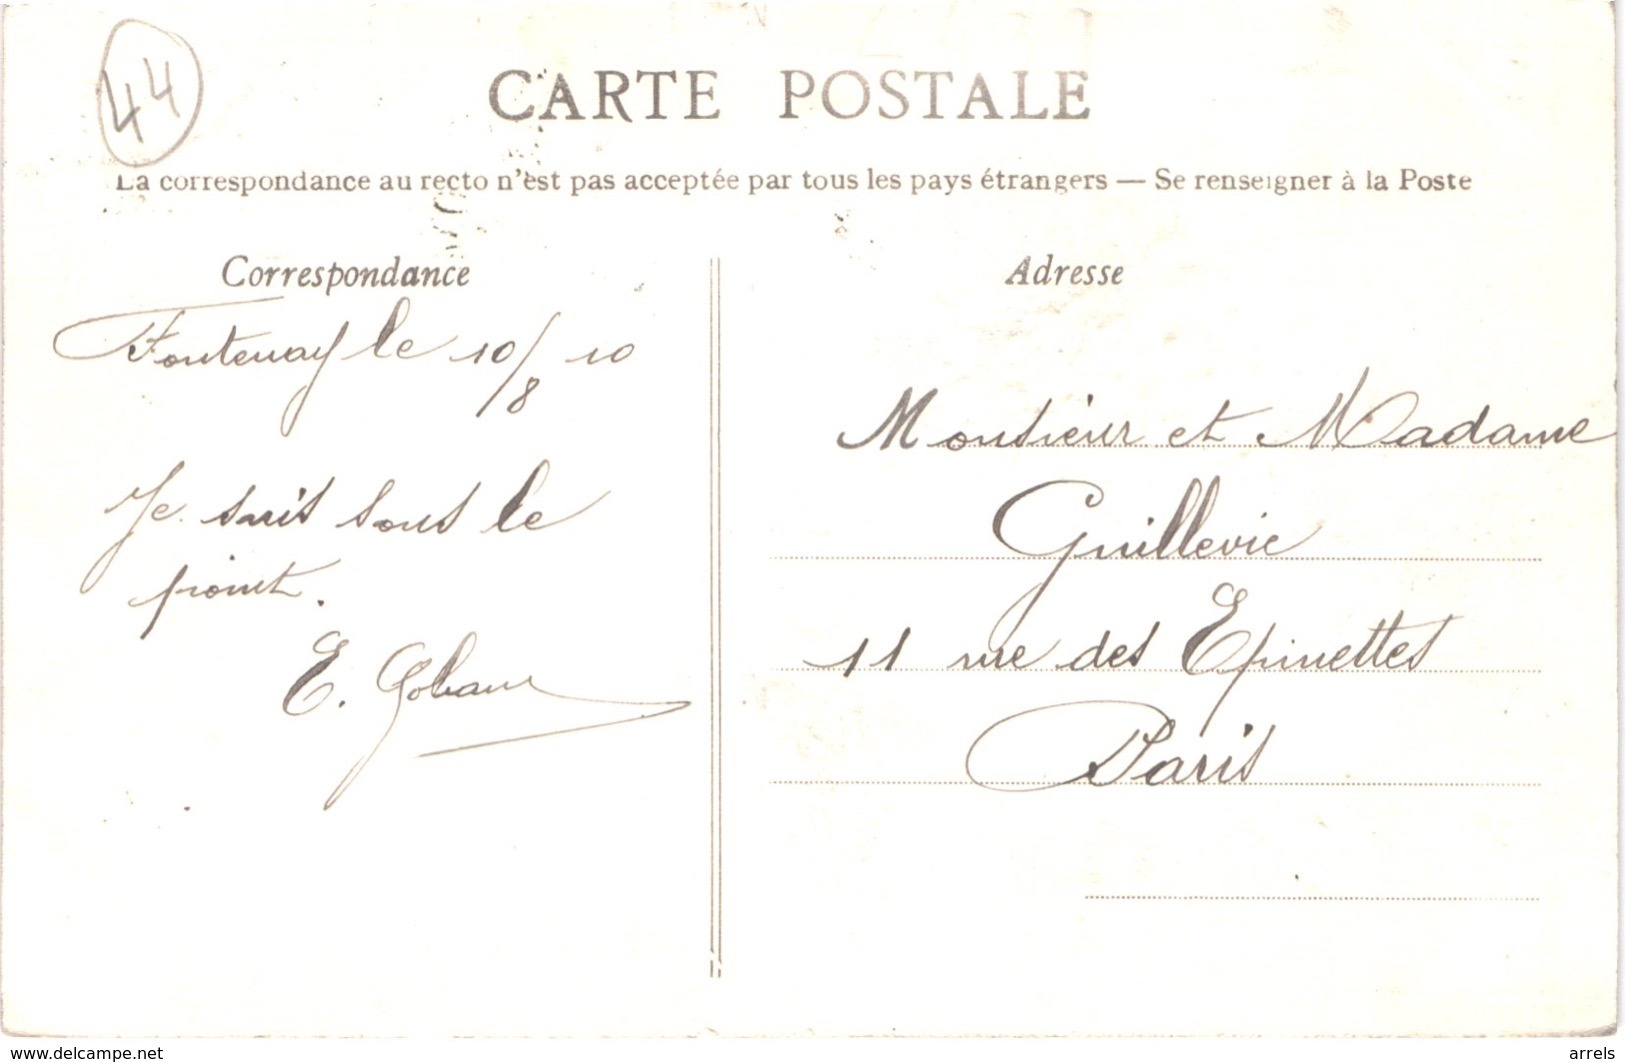 44
CARTE POSTALE
La correspondance au recto n'est pas acceptée par tous les pays étrangers — Se renseigner à la Poste
Correspondance
Fontenay le 10/8 10
Je suis sous le
point.
E. Goban
Adresse
Monsieur et Madame
Guillevic
11 rue des Epinettes
Paris
www.delcampe.net
arrels